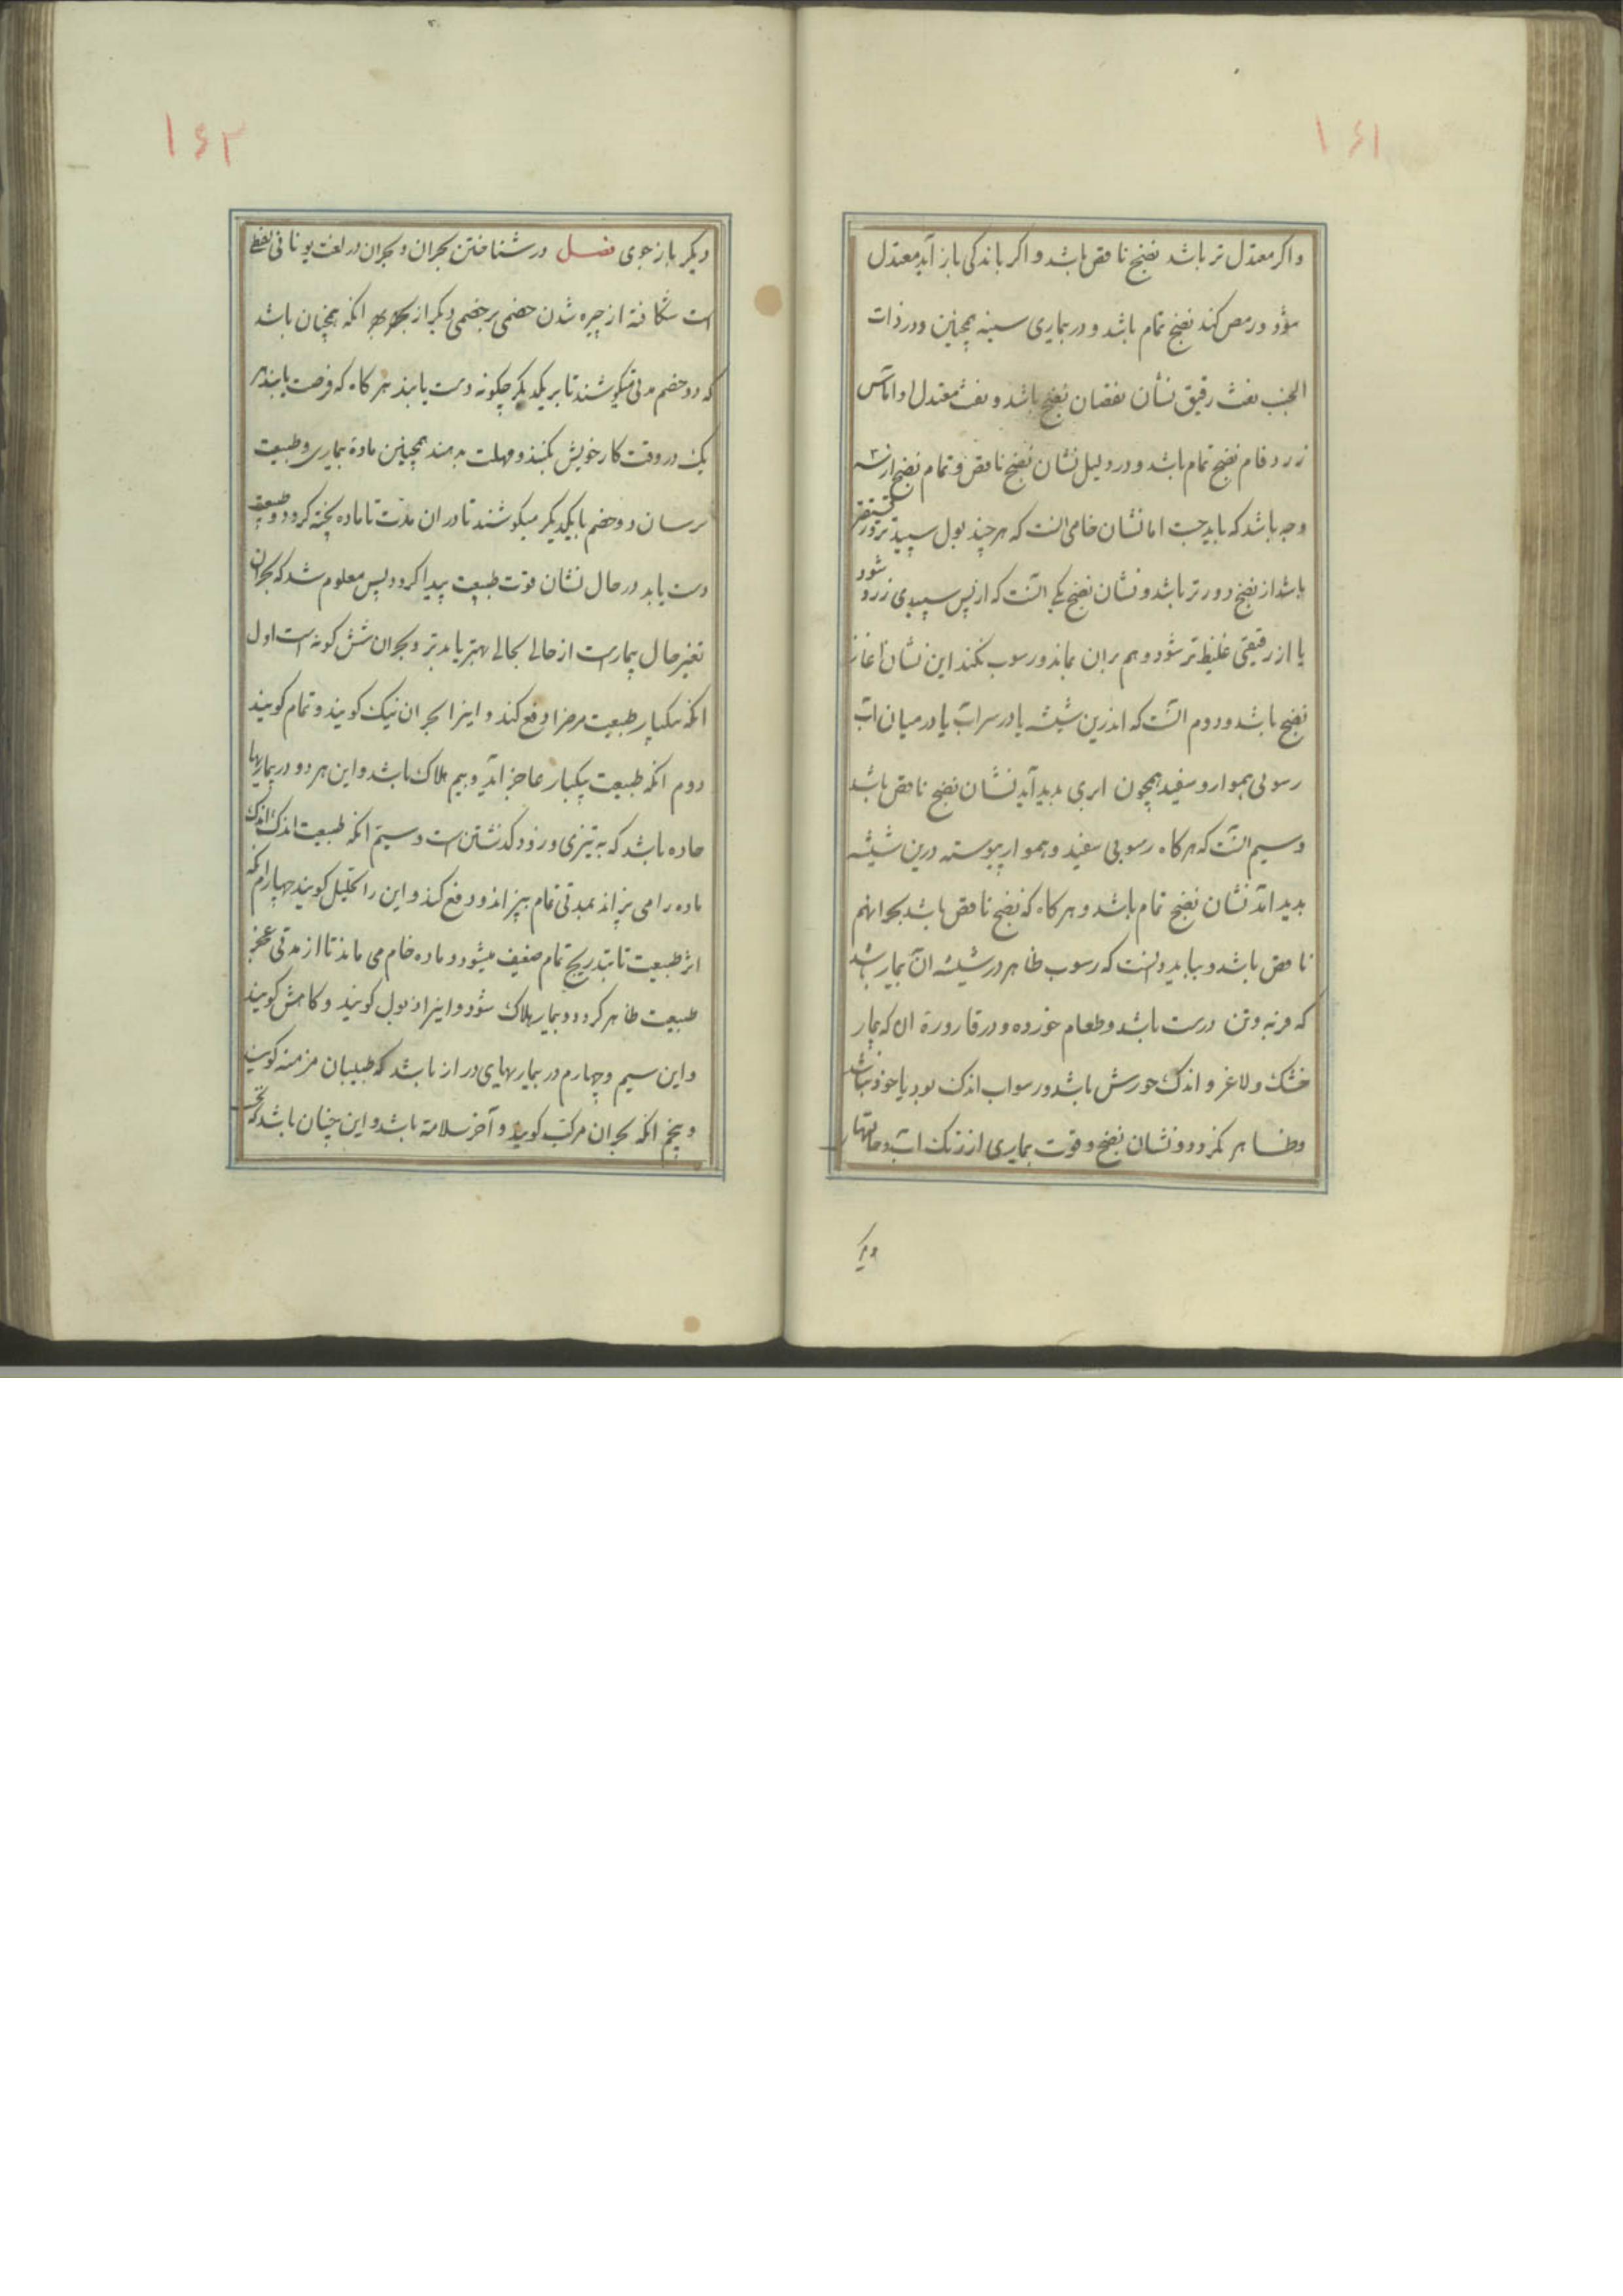 ۱۶۱
واکر معتدل تر باشد نضج ناقص باشد و اکر باندکی باز آید معتدل
شود و رمص کند نضج تمام باشد و در بیماری سینه همچنین و در ذات
الجنب نفث رقیق نشان نقصان نضج باشد و نفث معتدل و
زردفام نضج تمام باشد و در دلیل نشان نضج ناقص و تمام نضج از سه
وجه باشد که باید جست اما نشان خامی انست که هر چند بول سپید تر و رقیقتر
باشد از نضج دورتر باشد و نشان نضج یکی انست که از پس سپیدی زرد شود
یا از رقیقی غلیظ تر شود و هم بران بماند و رسوب نکند این نشان اغاز
نضج باشد و دوم انست که اندرین شیشه یا در سر آب یا در میان آب
رسوبی هموار و سفید همچون ابری بدید آید نشان نضج ناقص باشد
و سیم انست که هر کاه رسوبی سفید و هموار پیوسته درین شیشه
بدید آمد نشان نضج تمام باشد و هر کاه که نضج ناقص باشد بحرانهم
ناقص باشد و بباید دانست که رسوب ظاهر در شیشه آن بیمار باشد
که فربه و تن درست باشد و طعام خورده و در قاروره ان که بیمار
خشک و لاغر و اندک خورش باشد رسوب اندک بود یا خود نباشد
و ظاهر نکردد و نشان نضج و قوت بیماری از رنک آب و حالتها
دیکر
۱۶۲
دیکر باز جوی فصل در شناختن بحران و بحران در لغت یونانی لفظی
است شکافته از چیره شدن خصمی بر خصمی دیکر از بهر انکه همچنان باشد
که دو خصم مدتی میکوشند تا بر یکدیکر چکونه دست یابند هر کاه که فرصت یابند هر
یک در وقت کار خویش بکنند و مهلت ندهند همچنین ماده بیماری و طبیعت
برسان دو خصم با یکدیکر میکوشند تا در ان مدت تا ماده پخته کردد و طبیعت
دست یابد در حال نشان قوت طبیعت پیدا کردد پس معلوم شد که بحران
تغیر حال بیماریست از حالی بحالی بهتر یا بدتر و بحران شش کونه است اول
انکه بیکبار طبیعت مرض را دفع کند و اینرا بحران نیک کویند و تمام کویند
دوم انکه طبیعت بیکبار عاجز آید و بیم هلاک باشد و این هر دو در بیماریها
حاده باشد که به تیزی و زود کذشتن است و سیم انکه طبیعت اندک اندک
ماده را می پزاند بمدتی تمام بپزاند و دفع کند و این را تحلیل کویند چهارم انکه
اثر طبیعت تا بتدریج تمام ضعیف میشود و ماده خام می ماند تا از مدتی عجز
طبیعت ظاهر کردد و بیمار هلاک شود و اینرا ذبول کویند و کاهش کویند
و این سیم و چهارم در بیماریهای دراز باشد که طبیبان مزمنه کویند
و پنجم انکه بحران مرکب کویند و آخر سلامة باشد و این چنان باشد که